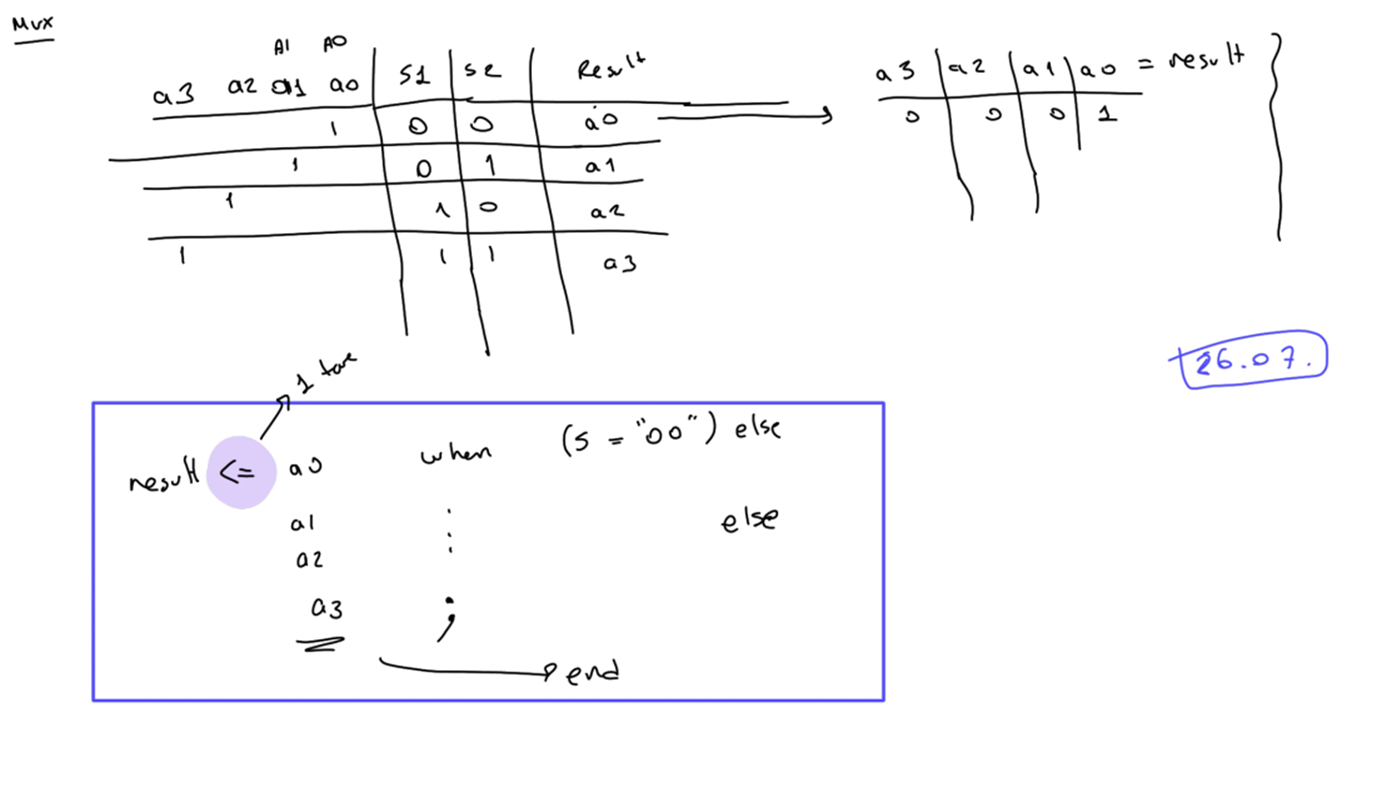 Mux
A1 A0
a3 a2 a1 a0 S1 S2 Result
1 0 0 a0
1 0 1 a1
1 1 0 a2
1 1 1 a3
a3 a2 a1 a0 = result
0 0 0 1
26.07.
1 tane
result <= a0 when (s = "00") else
a1 : else
a2 :
a3 ;
end